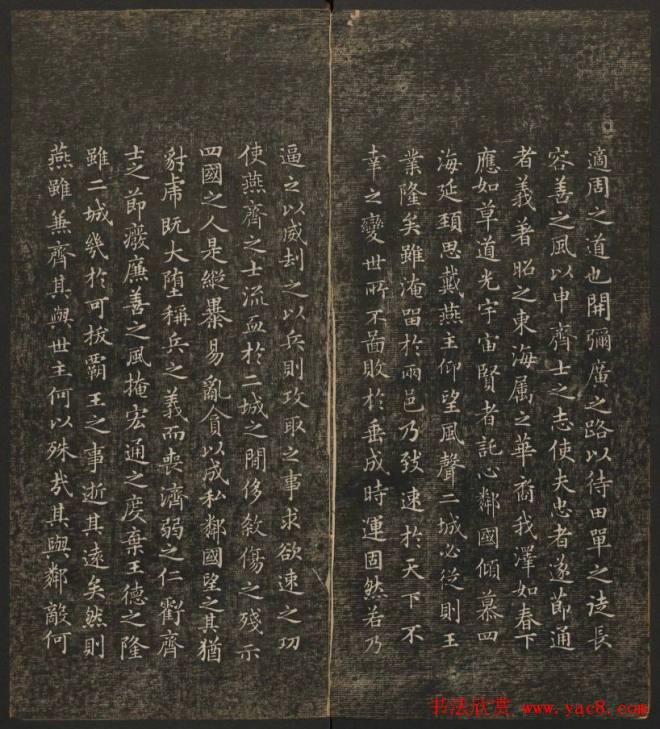 適周之道也開彌廣之路以待田單之徒長
容善之風以申齊士之志使夫忠者遂節通
者義著昭之東海属之華裔我澤如春下
應如草道光宇宙賢者託心鄰國傾慕四
海延頚思戴燕主仰望風聲二城必從則王
業隆矣雖淹留於兩邑乃致速於天下不
幸之變世所不啚敗於垂成時運固然若乃
逼之以威刦之以兵則攻取之事求欲速之功
使燕齊之士流血於二城之間侈敘傷之殘示
四國之人是縱暴易亂貪以成私鄰國望之其猶
豺虎既大堕稱兵之義而喪濟弱之仁虧齊
士之節癈廉善之風掩宏通之度棄王德之隆
雖二城幾於可拔霸王之事逝其遠矣然則
燕雖兼齊其與世主何以殊哉其與鄰敵何
书法欣赏 www.yac8.com